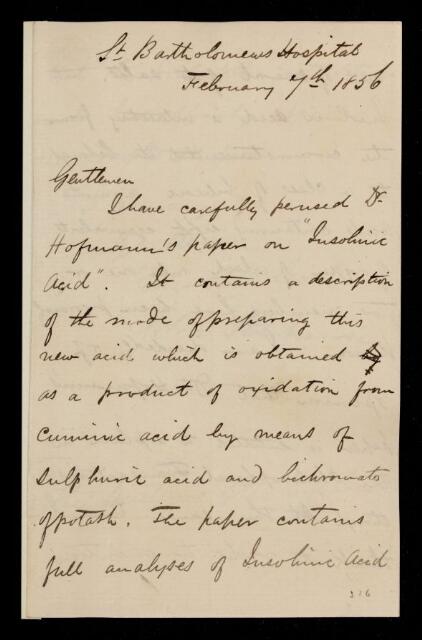 St Bartholomews Hospital
February 7th 1856
Gentlemen
I have carefully perused Dr
Hofmann's paper on "Insolinic
Acid". It contains a description
of the mode of preparing this
new acid which is obtained by
as a product of oxidation from
Cuminic acid by means of
Sulphuric acid and bichromate
of potash. The paper contains
full analyses of Insolinic Acid
316